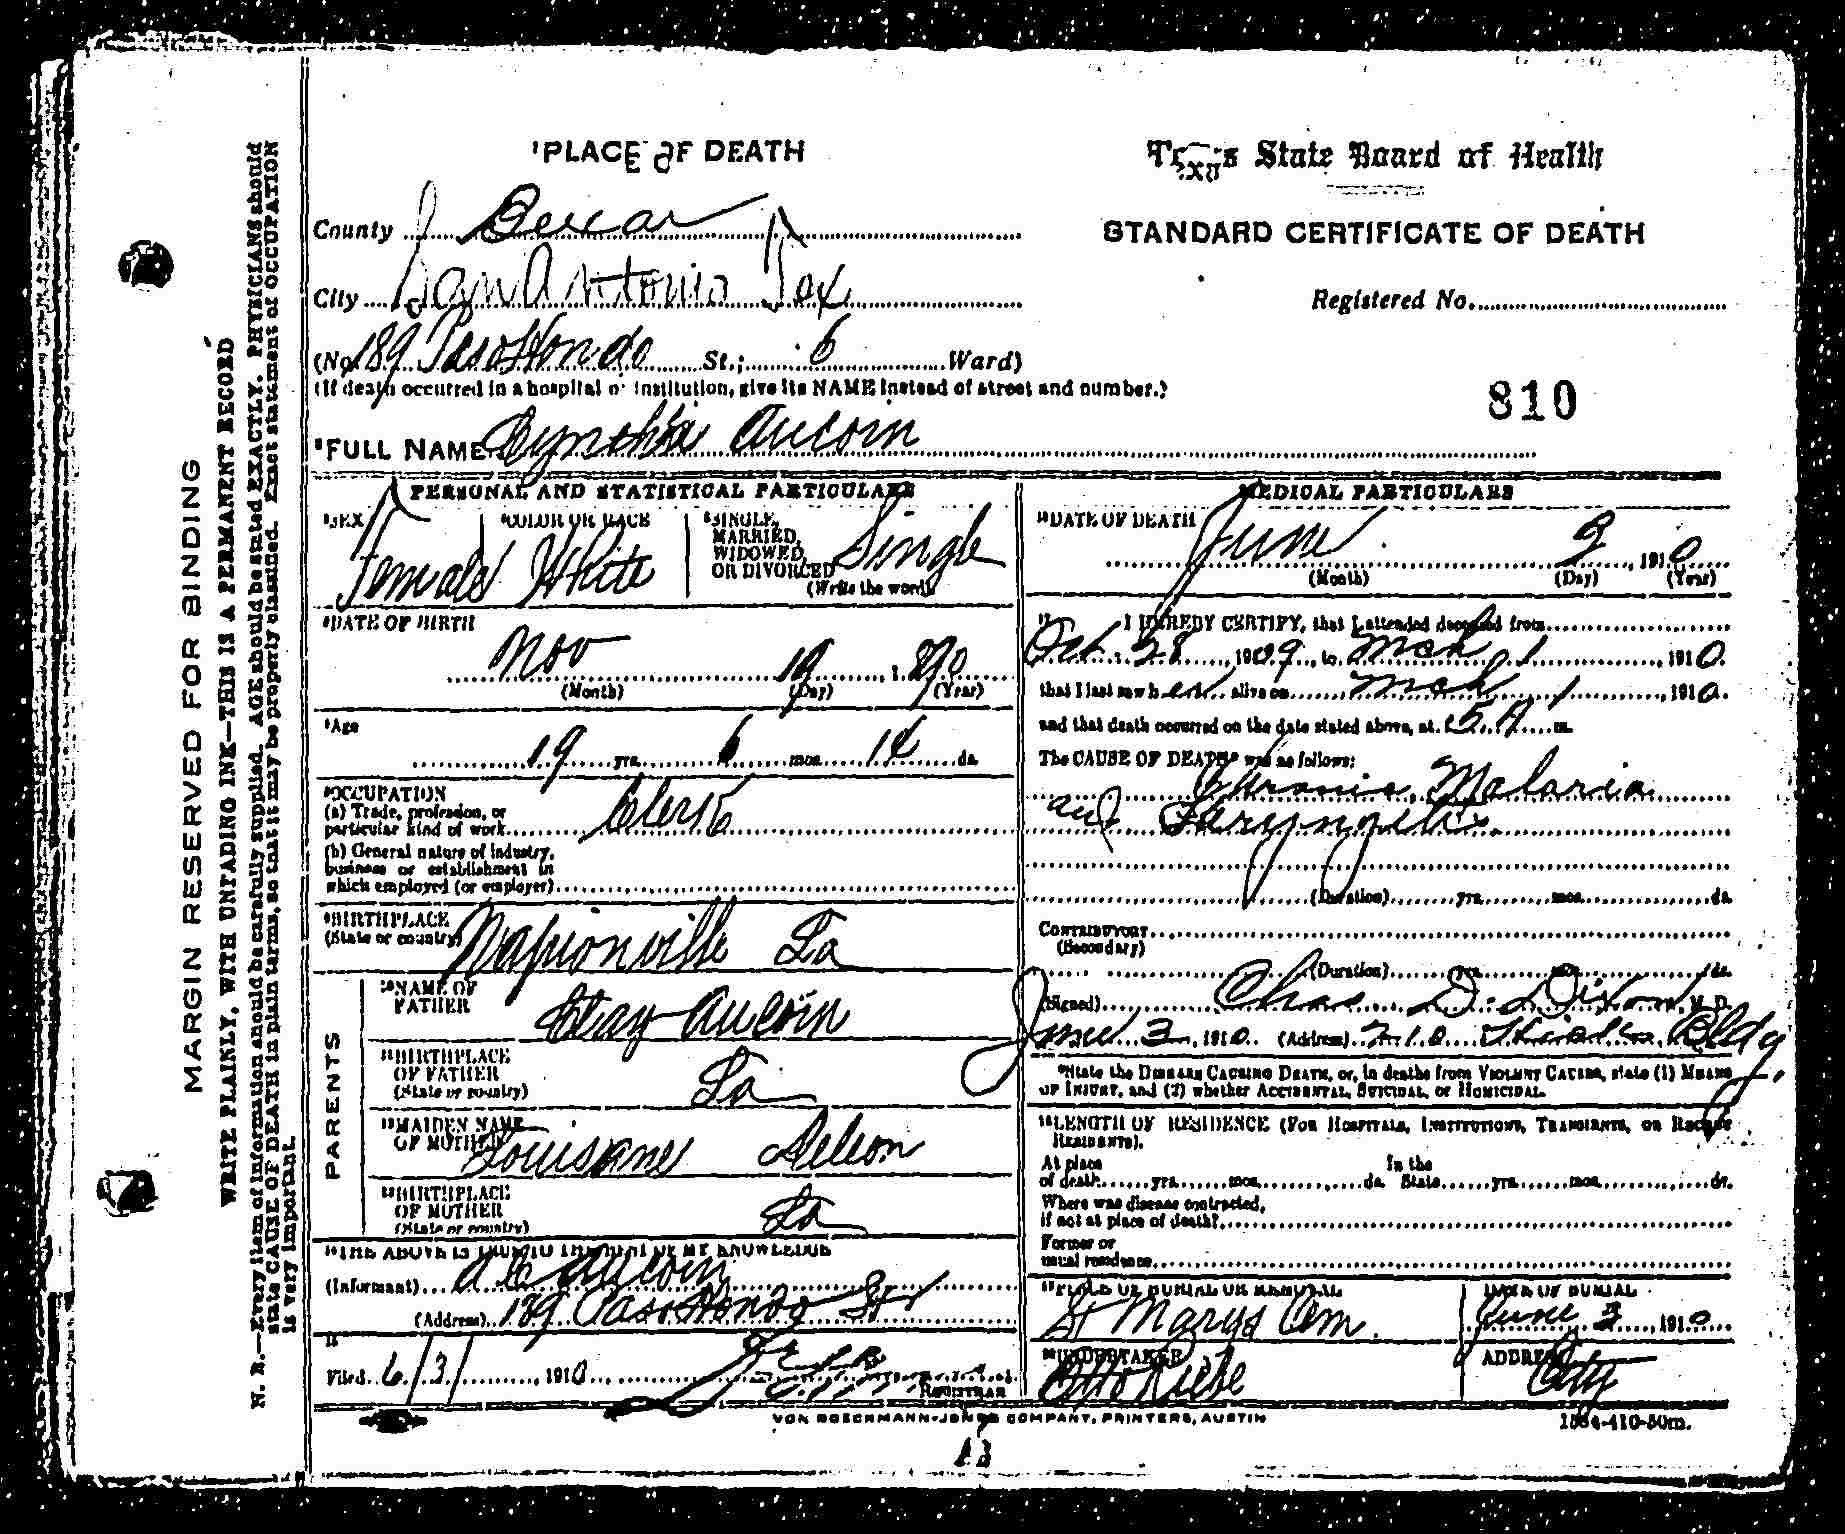 MARGIN RESERVED FOR BINDING
WRITE PLAINLY, WITH UNFADING INK—THIS IS A PERMANENT RECORD
N. B.—Every item of information should be carefully supplied. AGE should be stated EXACTLY. PHYSICIANS should
state CAUSE OF DEATH in plain terms, so that it may be properly classified. Exact statement of OCCUPATION
is very important.
1PLACE OF DEATH
County Bexar
City San Antonio Tex
(No 189 Paso Hondo St.; 6 Ward)
(If death occurred in a hospital or institution, give its NAME instead of street and number.)
2FULL NAME Cynthia Aucoin
Texas State Board of Health
STANDARD CERTIFICATE OF DEATH
Registered No.
810
PERSONAL AND STATISTICAL PARTICULARS
3SEX Female
4COLOR OR RACE White
5SINGLE,
MARRIED,
WIDOWED,
OR DIVORCED Single
(Write the word)
6DATE OF BIRTH
Nov 19, 1890
(Month) (Day) (Year)
7Age
19 yrs. 6 mos. 14 ds.
8OCCUPATION
(a) Trade, profession, or
particular kind of work Clerk
(b) General nature of industry,
business or establishment in
which employed (or employer)
9BIRTHPLACE
(State or country) Napionville La
PARENTS
10NAME OF
FATHER Aucoin
11BIRTHPLACE
OF FATHER
(State or country) La
12MAIDEN NAME
OF MOTHER Louisiane
13BIRTHPLACE
OF MOTHER
(State or country) La
14THE ABOVE IS TRUE TO THE BEST OF MY KNOWLEDGE
(Informant) Aucoin
(Address) 189 Paso Hondo St
15
Filed 6/3/, 1910
REGISTRAR
MEDICAL PARTICULARS
16DATE OF DEATH
June 2, 1910
(Month) (Day) (Year)
17 I HEREBY CERTIFY, that I attended deceased from
Oct 28, 1909, to Mch 1, 1910.
that I last saw h er alive on Mch 1, 1910.
and that death occurred on the date stated above, at 5 A m.
The CAUSE OF DEATH* was as follows:
Chronic Malaria
and Laryngitis.
(Duration) yrs. mos. ds.
CONTRIBUTORY
(Secondary)
(Duration) yrs. mos. ds.
(Signed) Chas. D. Dixon, M. D.
June 3, 1910 (Address) 210 Bldg.
*State the DISEASE CAUSING DEATH, or, in deaths from VIOLENT CAUSES, state (1) MEANS
OF INJURY, and (2) whether ACCIDENTAL, SUICIDAL, or HOMICIDAL.
18LENGTH OF RESIDENCE (FOR HOSPITALS, INSTITUTIONS, TRANSIENTS, OR RECENT
RESIDENTS).
At place In the
of death yrs. mos. ds. State yrs. mos. ds.
Where was disease contracted,
if not at place of death?
Former or
usual residence
19PLACE OF BURIAL OR REMOVAL
St Marys Cem.
DATE OF BURIAL
June 3, 1910
20UNDERTAKER
Otto Riebe
ADDRESS
City
VON BOECKMANN-JONES COMPANY, PRINTERS, AUSTIN
1584-410-50m.